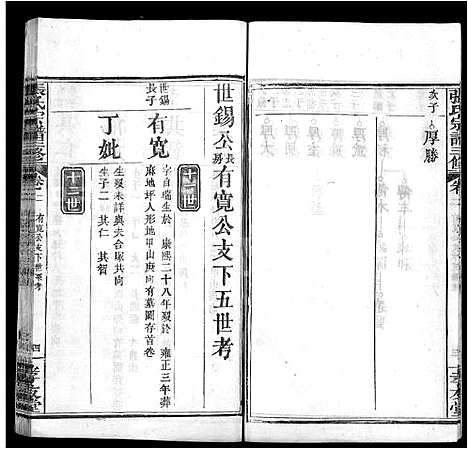 張氏宗譜三修
次子
厚勝
世錫公長房有寬公支下五世考
十二世
世錫
長子
有寬
字自瑞生於 康熙二十八年歿於 雍正三年葬
麻地坪人形地甲山庚向有墓圖存首卷
丁妣
生歿未詳與夫合塚共向
生子二 其仁 其智
十三世
張氏宗譜三修
有寬公支下世系考
四
孝友堂